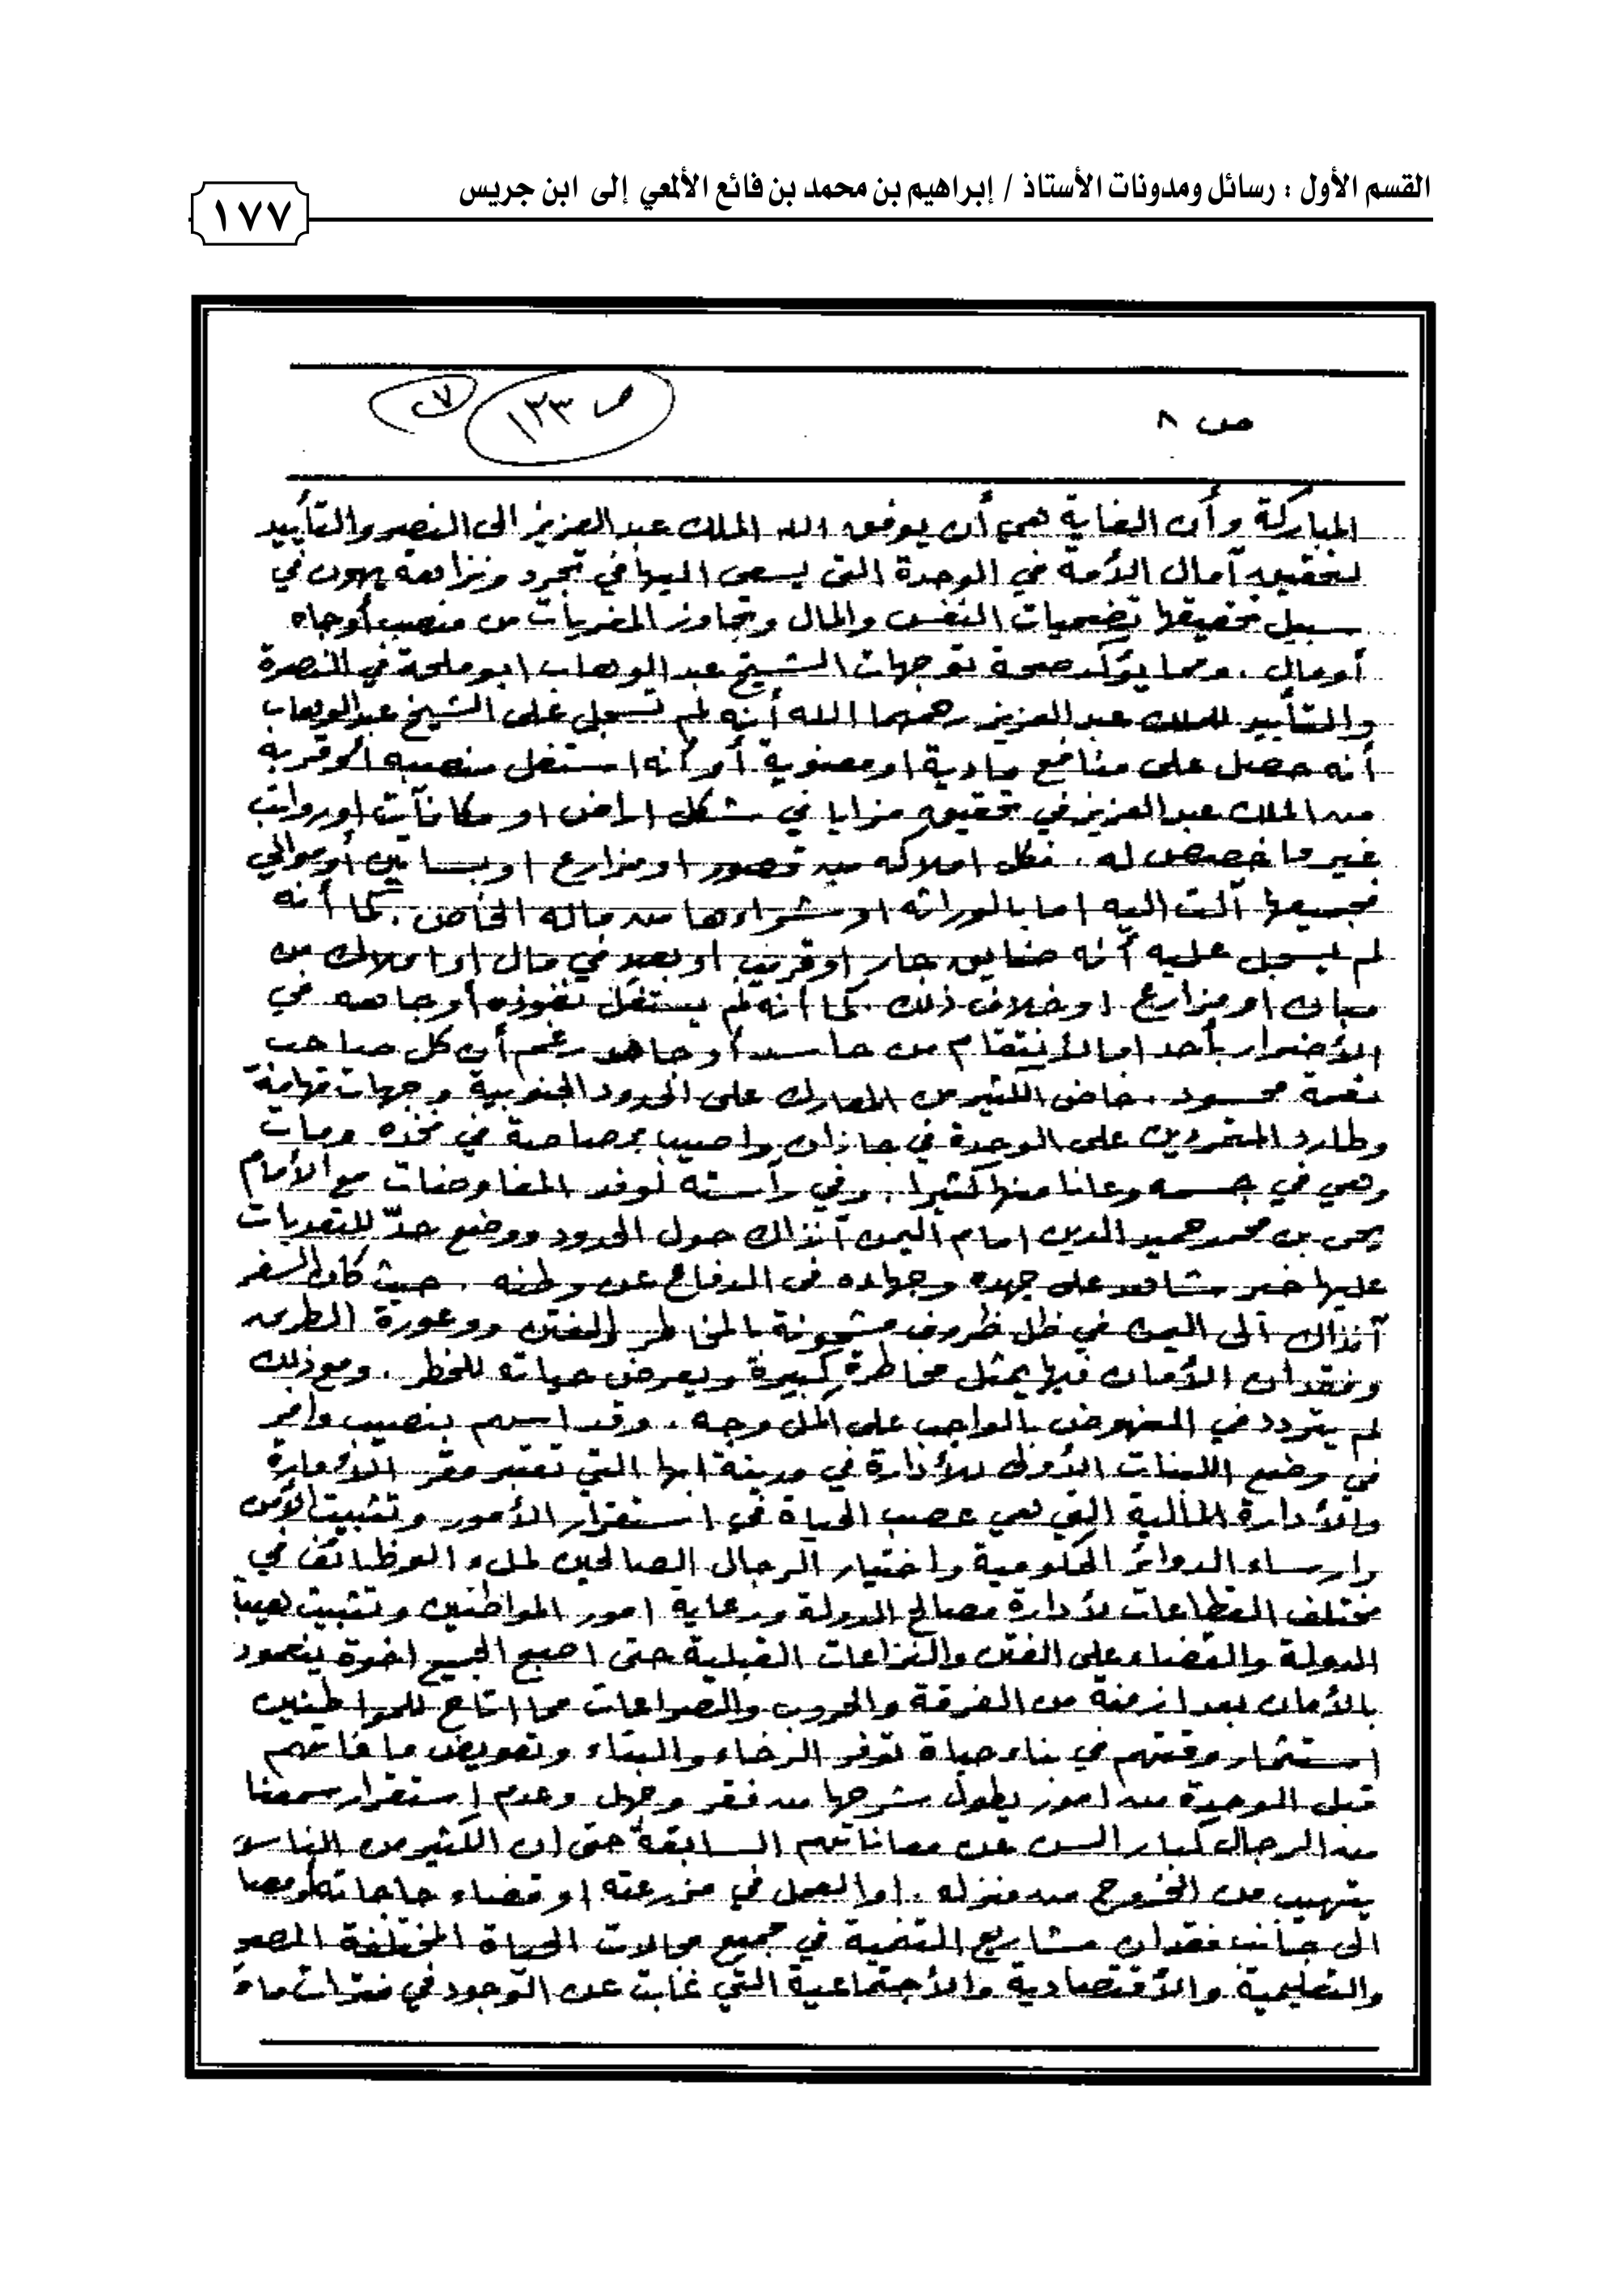 القسم الأول : رسائل ومدونات الأستاذ / إبراهيم بن محمد بن فائع الألمعي إلى ابن جريس
١٧٧
ص ٨
ص ١٣٣
المباركة وأن الغاية هي أن يوفق الله الملك عبدالعزيز الى النصر والتأييد
لتحقيق آمال الأمة في الوحدة التى يسعى اليها في تجرد ونزاهة يهون في
سبيل تحقيقها تضحيات النفس والمال وتجاوز المغريات من منصب أو جاه
أو مال . ومما يؤكد صحة توجهات الشيخ عبدالوهاب ابو ملحة في النصرة
والتأييد للملك عبدالعزيز رحمهما الله أنه لم تسجل على الشيخ عبدالوهاب
أنه حصل على منافع مادية او معنوية أو أنه استغل منصبه أو قربه
من الملك عبدالعزيز في تحقيق مزايا في شكل اراض او مكافآت او رواتب
غير ما خصص له . فكل املاكه من قصور او مزارع او بساتين أو موالي
فجميعها آلت اليه اما بالوراثه او شراءها من ماله الخاص . كما أنه
لم يسجل عليه أنه ضايق جار او قريب او بعيد في مال او املاك من
مبان او مزارع او خلاف ذلك . كما أنه لم يستغل نفوذه أو جاهه في
الأضرار بأحد او الأنتقام من حاسد أو جاهد رغم أن كل صاحب
نعمة محسود . خاض الكثير من المعارك على الحدود الجنوبية وجهات تهامة
وطارد المتمردين على الوحدة في جازان واصيب برصاصة في فخذه ومات
وهي في جسمه وعانا منها كثيرا . وفي رآسته لوفد المفاوضات مع الأمام
يحى بن محمد حميد الدين امام اليمن آنذاك حول الحدود ووضع حدّ للتعديات
عليها خير شاهد على جهده وجهاده في الدفاع عن وطنه . حيث كان السفر
آنذاك الى اليمن في ظل ظروف مشحونة بالمخاطر والفتن ووعورة الطريق
وفقدان الأمان فيها يمثل مخاطرة كبيرة ويعرض حياته للخطر . ومع ذلك
لم يتردد في النهوض بالواجب على اكمل وجه . وقد اسهم بنصيب وافر
في وضع اللبنات الأولى للأدارة في مدينة ابها التي تعتبر مقر الأمارة
والأدارة المالية التي هي عصب الحياة في استقرار الأمور وتثبيت الأمن
وارساء الدوائر الحكومية واختيار الرجال الصالحين لملء الوظائف في
مختلف القطاعات لأدارة مصالح الدولة ورعاية امور المواطنين وتثبيت هيبة
الدولة والقضاء على الفتن والنزاعات القبلية حتى اصبح الجميع اخوة ينعمون
بالأمان بعد ازمنة من الفرقة والحروب والصراعات مما اتاح للمواطنين
استثمار وقتهم في بناء حياة توفر الرخاء والبناء وتعويض ما فاتهم
قبل الوحدة من امور يطول شرحها من فقر وجهل وعدم استقرار سمعنا
من الرجال كبار السن عن معاناتهم السابقة حتى ان الكثير من الناس
يتهيب من الخروج من منزله . او العمل في مزرعته او قضاء حاجاته
الى جانب فقدان مشاريع التنمية في جميع مجالات الحياة المختلفة
والتعليمية والأقتصادية والأجتماعية التي غابت عن الوجود في فترات